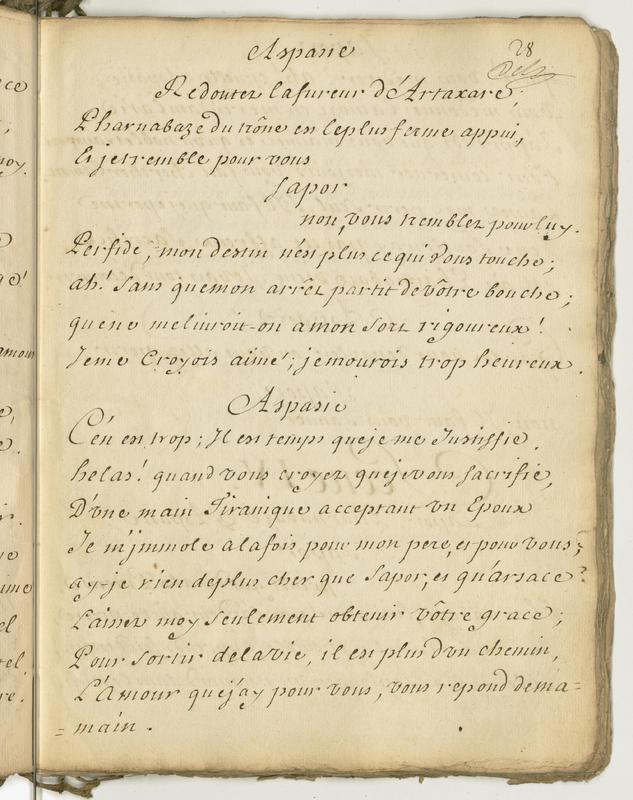 28
Aspasie
Redoutez la fureur d'Artaxare;
Pharnabaze du trône est le plus ferme appui,
Et je tremble pour vous
Sapor
non, vous tremblez pour luy.
Perfide, mon destin n'est plus ce qui vous touche;
ah! sans que mon arrêt partit de vôtre bouche;
que ne me livroit-on a mon sort rigoureux!
Je me Croyois aimé; je mourois trop heureux.
Aspasie
C'en est trop; Il est temps que je me Justifie.
helas! quand vous croyez que je vous sacrifie,
D'une main Tiranique acceptant un Epoux
Je m'jmmole a la fois pour mon pere, et pour vous;
ay-je rien de plus cher que Sapor, et qu'arsace?
Laissez moy seulement obtenir vôtre grace;
Pour sortir de la vie, il est plus d'un chemin,
L'Amour que j'ay pour vous, vous repond de ma=
=main.